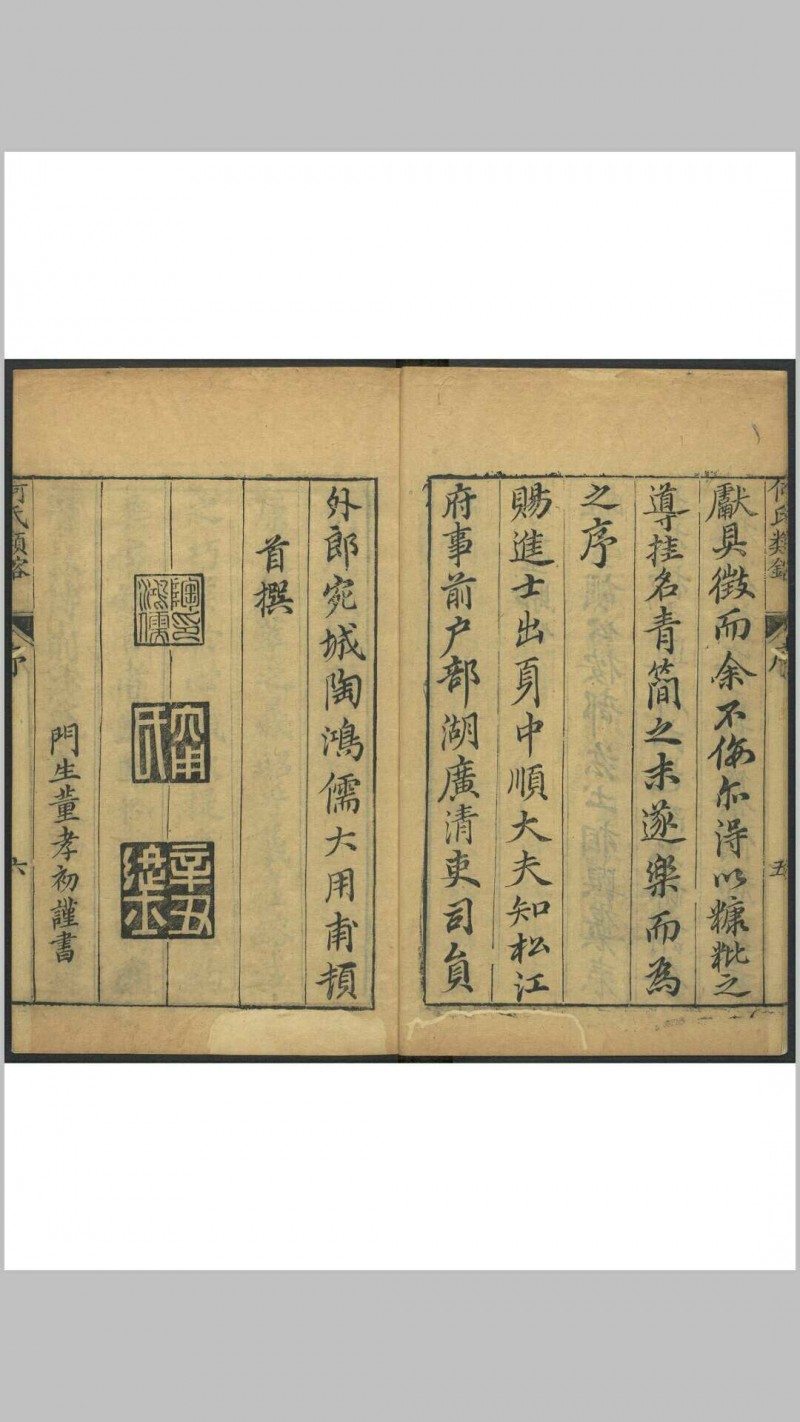 何氏類鎔
序
五
獻具徵而余不侮尔淂以糠粃之
導挂名青簡之末遂樂而為
之序
賜進士出身中順大夫知松江
府事前户部湖廣清吏司員
外郎宛城陶鴻儒大用甫頓
首撰
陶印鴻儒
大用氏
辛丑進士
門生董孝初謹書
何氏類鎔
序
六